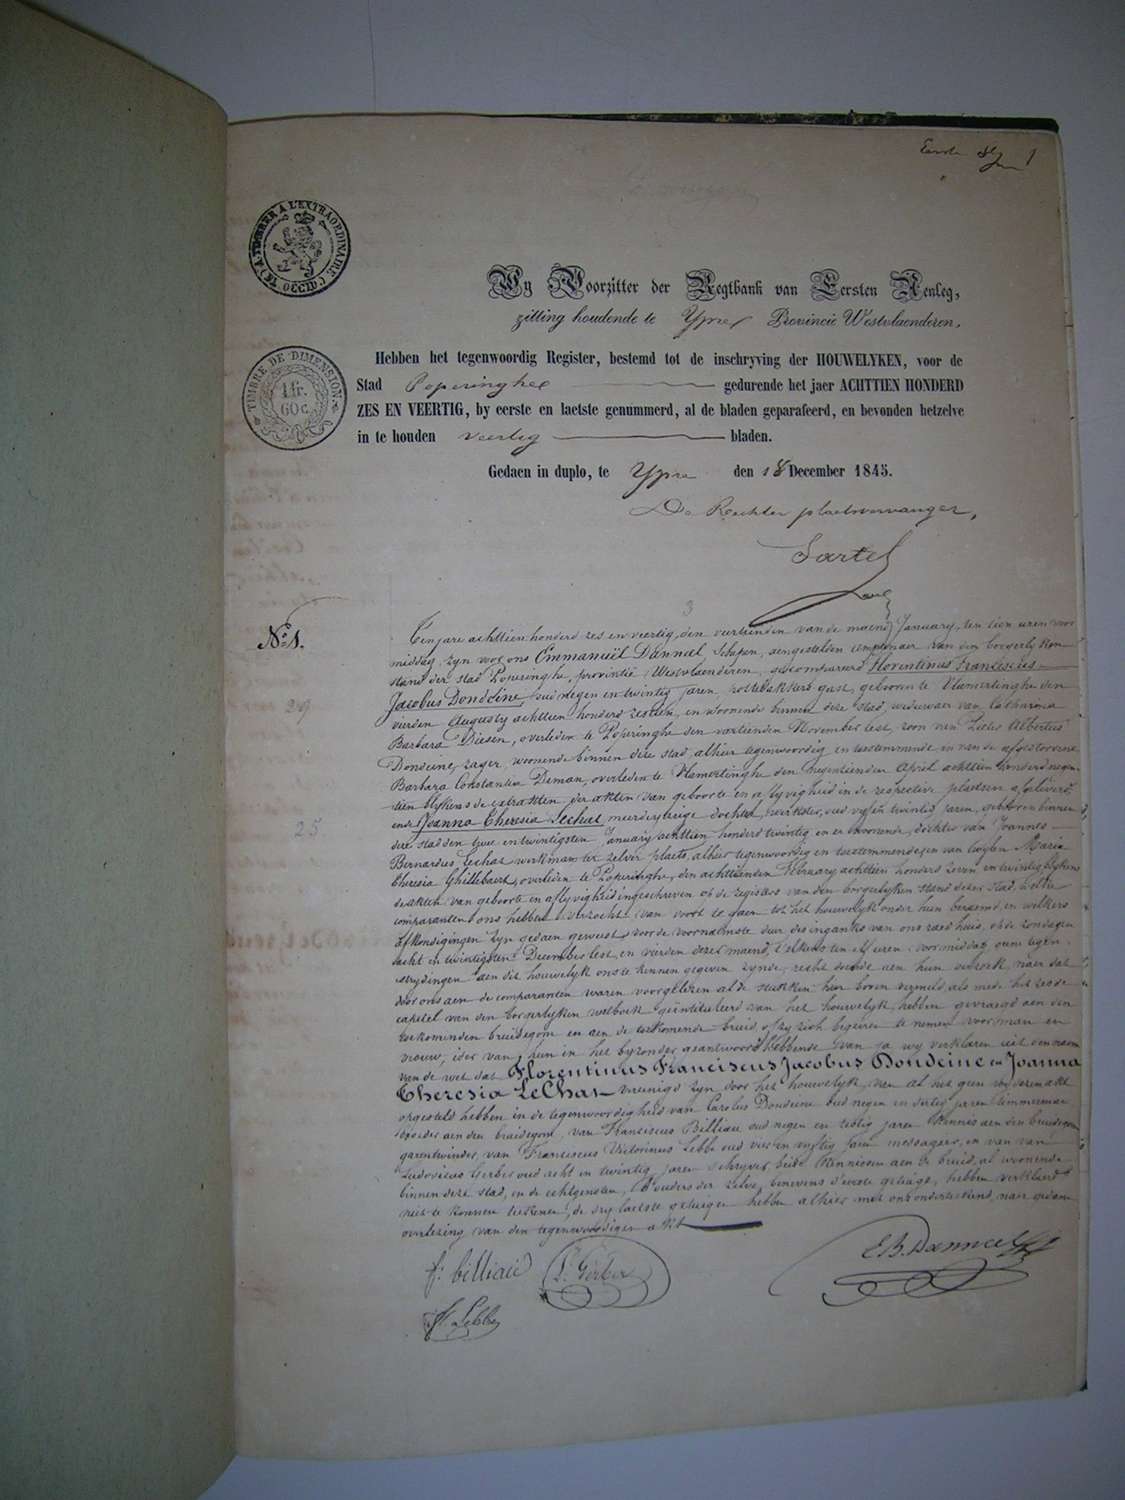 Eerste 1
(14) A TIMBRER A L'EXTRAORDINAIRE (OCCID.
TIMBRE DE DIMENSION
1 fr.
60 c.
Wy Voorzitter der Regtbank van Eersten Aenleg,
zitting houdende te Ypre Provincie Westvlaenderen,
Hebben het tegenwoordig Register, bestemd tot de inschryving der HOUWELYKEN, voor de
Stad Poperinghe gedurende het jaer ACHTTIEN HONDERD
ZES EN VEERTIG, by eerste en laetste genummerd, al de bladen geparafeerd, en bevonden hetzelve
in te houden veertig bladen.
Gedaen in duplo, te Ypre den 18 December 1845.
De Rechter plaetsvervanger,
Sartel
3
N° 1.
Ten jare achttien honderd zes en veertig, den veertienden van de maend January, ten tien uren voor
middag, zyn voor ons Emmanuël Dannéel Schepen, aengestelden ampternaer van den borgerlyken
stand der stad Poperinghe, provintie Westvlaenderen, gecompareerd Florentinus Franciscus
Jacobus Dondeine, oud negen en twintig jaren, zottebakkers gast, geboren te Vlamertinghe den
vierden Augusty achttien honderd zestien, en woonende binnen deze stad, weduwaer van Catharina
29
Barbara Diesen, overleden te Poperinghe den veertienden November lest, zoon van Pieter Albertus
Dondeine, zager, woonende binnen deze stad, alhier tegenwoordig en toestemmende en van de afgestorvene
Barbara Constantia Deman, overleden te Vlamertinghe den negentienden April achttien honderd negen-
tien blykens de extrakten der akten van geboorte en aflyvigheid in de respective plaetsen afgeleverd,
ende Joanna Theresia Lechat, meerderjarige dochter, werkster, oud vyf en twintig jaren, geboren binnen
25
deze stad den twee en twintigsten January achttien honderd twintig en er woonende, dochter van Joannes
Bernardus Lechat werkman ter zelver plaets, alhier tegenwoordig en toestemmende en van wylen Maria
Theresia Ghillebaert, overleden te Poperinghe, den achttienden February achttien honderd zeven en twintig blykens
de akten van geboorte en aflyvigheid ingeschreven op de registers van den borgerlyken stand dezer stad, Welke
comparanten ons hebben verzocht van voort te gaen tot het houwelyk onder hun beraemd, en welkers
afkondigingen zyn gedaen geweest voor de voornaemste deur des ingangs van ons raedhuis, op de zondagen
acht en twintigsten December lest, en vierden dezer maend, telkens ten uren voor middag, geene tegen-
strydingen aen dit houwelyk ons te kennen gegeven zynde, recht doende aen hun verzoek, naer dat
door ons aen de comparanten waren voorgelezen al de stukken hier boven vermeld als mede het zesde
capitel van den borgerlyken wetboek geintituleerd van het houwelyk, hebben gevraegd aen den
toekomenden bruidegom en aen de toekomende bruid of zy zich begeren te nemen voor man en
vrouw, ider van hun in het byzonder geantwoord hebbende van ja wy verklaren uit den naem
van de wet dat Florentinus Franciscus Jacobus Dondeine en Joanna
Theresia Lechat vereenigd zyn door het houwelyk, van al het geen wy dezen akt
opgesteld hebben in de tegenwoordigheid van Carolus Dondeine oud negen en dertig jaren timmerman
broeder aen den bruidegom, van Franciscus Billiau oud negen en zestig jaren kennis aen den bruidegom
garentwinder, van Franciscus Victorinus Lebbe oud vier en vyftig jaren messager, en van
Ludovicus Gerber oud acht en twintig jaren schryver, beide kennissen aen de bruid, al woonende
binnen deze stad, en de echtgenoten, d'ouders der zelve, benevens d'eerste getuige, hebben verklaerd
niet te konnen teekenen, de dry laetste getuigen hebben alhier met ons onderteekend, naer gedane
overlezing van den tegenwoordigen akt
f: billiau
L. Gerber
E B. Danneel
f V Lebbe